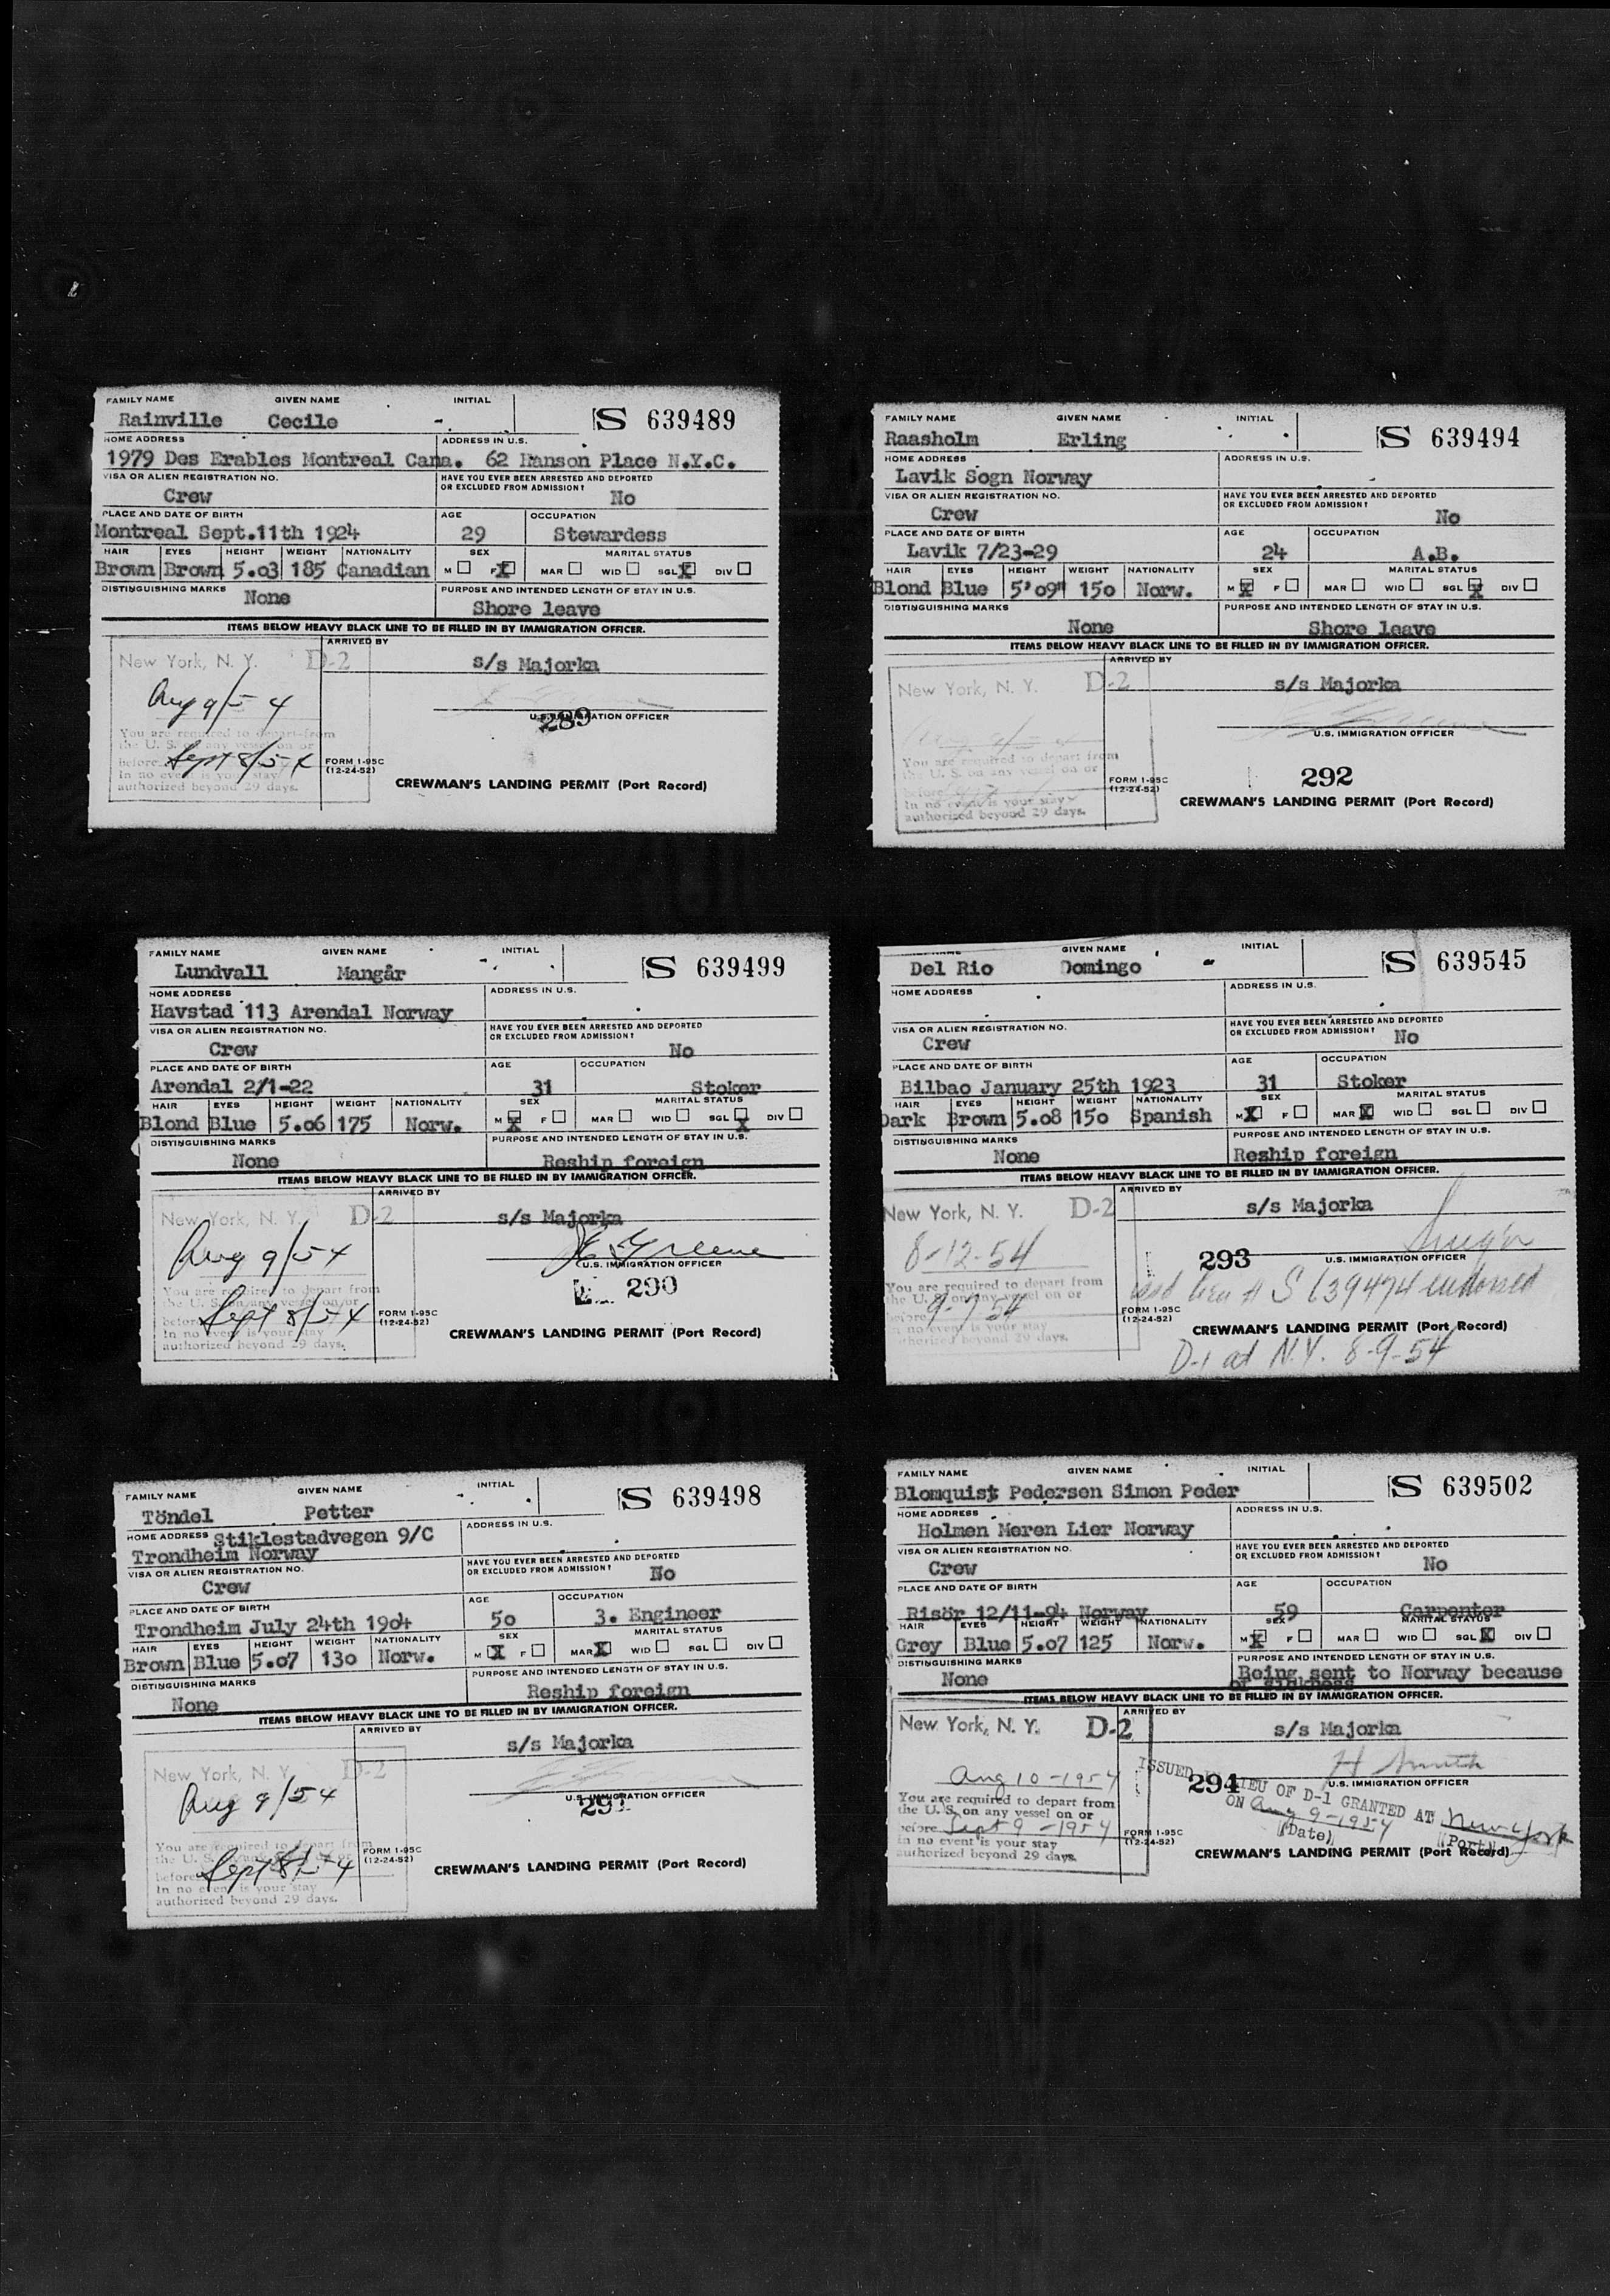 FAMILY NAME GIVEN NAME INITIAL
Rainville Cecile - S 639489
HOME ADDRESS ADDRESS IN U.S.
1979 Des Erables Montreal Cana. 62 Hanson Place N.Y.C.
VISA OR ALIEN REGISTRATION NO. HAVE YOU EVER BEEN ARRESTED AND DEPORTED
OR EXCLUDED FROM ADMISSION?
Crew No
PLACE AND DATE OF BIRTH AGE OCCUPATION
Montreal Sept.11th 1924 29 Stewardess
HAIR EYES HEIGHT WEIGHT NATIONALITY SEX MARITAL STATUS
Brown Brown 5.03 185 Canadian M F X MAR WID SGL X DIV
DISTINGUISHING MARKS PURPOSE AND INTENDED LENGTH OF STAY IN U.S.
None Shore leave
ITEMS BELOW HEAVY BLACK LINE TO BE FILLED IN BY IMMIGRATION OFFICER.
ARRIVED BY
New York, N. Y. D-2 s/s Majorka
Aug 9/54
U.S. IMMIGRATION OFFICER
289
You are required to depart from
the U. S. on any vessel on or
before Sept 8/54
In no event is your stay
authorized beyond 29 days.
FORM I-95C
(12-24-52)
CREWMAN'S LANDING PERMIT (Port Record)
FAMILY NAME GIVEN NAME INITIAL
Raasholm Erling S 639494
HOME ADDRESS ADDRESS IN U.S.
Lavik Sogn Norway
VISA OR ALIEN REGISTRATION NO. HAVE YOU EVER BEEN ARRESTED AND DEPORTED
OR EXCLUDED FROM ADMISSION?
Crew No
PLACE AND DATE OF BIRTH AGE OCCUPATION
Lavik 7/23-29 24 A.B.
HAIR EYES HEIGHT WEIGHT NATIONALITY SEX MARITAL STATUS
Blond Blue 5'09" 150 Norw. M X F MAR WID SGL X DIV
DISTINGUISHING MARKS PURPOSE AND INTENDED LENGTH OF STAY IN U.S.
None Shore leave
ITEMS BELOW HEAVY BLACK LINE TO BE FILLED IN BY IMMIGRATION OFFICER.
ARRIVED BY
New York, N. Y. D-2 s/s Majorka
U.S. IMMIGRATION OFFICER
You are required to depart from
the U. S. on any vessel on or
before
In no event is your stay
authorized beyond 29 days.
FORM I-95C
(12-24-52)
292
CREWMAN'S LANDING PERMIT (Port Record)
FAMILY NAME GIVEN NAME INITIAL
Lundvall Mangår - S 639499
HOME ADDRESS ADDRESS IN U.S.
Havstad 113 Arendal Norway
VISA OR ALIEN REGISTRATION NO. HAVE YOU EVER BEEN ARRESTED AND DEPORTED
OR EXCLUDED FROM ADMISSION?
Crew No
PLACE AND DATE OF BIRTH AGE OCCUPATION
Arendal 2/1-22 31 Stoker
HAIR EYES HEIGHT WEIGHT NATIONALITY SEX MARITAL STATUS
Blond Blue 5.06 175 Norw. M X F MAR WID SGL X DIV
DISTINGUISHING MARKS PURPOSE AND INTENDED LENGTH OF STAY IN U.S.
None Reship foreign
ITEMS BELOW HEAVY BLACK LINE TO BE FILLED IN BY IMMIGRATION OFFICER.
ARRIVED BY
New York, N. Y. D-2 s/s Majorka
Aug 9/54 Greene
U.S. IMMIGRATION OFFICER
290
You are required to depart from
the U. S. on any vessel on or
before Sept 8/54
In no event is your stay
authorized beyond 29 days.
FORM I-95C
(12-24-52)
CREWMAN'S LANDING PERMIT (Port Record)
GIVEN NAME INITIAL
Del Rio Domingo - S 639545
HOME ADDRESS ADDRESS IN U.S.
VISA OR ALIEN REGISTRATION NO. HAVE YOU EVER BEEN ARRESTED AND DEPORTED
OR EXCLUDED FROM ADMISSION?
Crew No
PLACE AND DATE OF BIRTH AGE OCCUPATION
Bilbao January 25th 1923 31 Stoker
HAIR EYES HEIGHT WEIGHT NATIONALITY SEX MARITAL STATUS
Dark Brown 5.08 150 Spanish M X F MAR X WID SGL DIV
DISTINGUISHING MARKS PURPOSE AND INTENDED LENGTH OF STAY IN U.S.
None Reship foreign
ITEMS BELOW HEAVY BLACK LINE TO BE FILLED IN BY IMMIGRATION OFFICER.
ARRIVED BY
New York, N. Y. D-2 s/s Majorka
8-12-54
293 U.S. IMMIGRATION OFFICER
You are required to depart from
the U. S. on any vessel on or
before 9-7-54
In no event is your stay
authorized beyond 29 days.
lieu # S 639474 endorsed
FORM I-95C
(12-24-52)
CREWMAN'S LANDING PERMIT (Port Record)
D-1 at N.Y. 8-9-54
FAMILY NAME GIVEN NAME INITIAL
Töndel Petter - S 639498
HOME ADDRESS Stiklestadvegen 9/C ADDRESS IN U.S.
Trondheim Norway
VISA OR ALIEN REGISTRATION NO. HAVE YOU EVER BEEN ARRESTED AND DEPORTED
OR EXCLUDED FROM ADMISSION?
Crew No
PLACE AND DATE OF BIRTH AGE OCCUPATION
Trondheim July 24th 1904 50 3. Engineer
HAIR EYES HEIGHT WEIGHT NATIONALITY SEX MARITAL STATUS
Brown Blue 5.07 130 Norw. M X F MAR X WID SGL DIV
DISTINGUISHING MARKS PURPOSE AND INTENDED LENGTH OF STAY IN U.S.
None Reship foreign
ITEMS BELOW HEAVY BLACK LINE TO BE FILLED IN BY IMMIGRATION OFFICER.
ARRIVED BY
New York, N. Y. D-2 s/s Majorka
Aug 9/54
U.S. IMMIGRATION OFFICER
291
You are required to depart from
the U. S. on any vessel on or
before Sept 8/54
In no event is your stay
authorized beyond 29 days.
FORM I-95C
(12-24-52)
CREWMAN'S LANDING PERMIT (Port Record)
FAMILY NAME GIVEN NAME INITIAL
Blomquist Pedersen Simon Peder S 639502
HOME ADDRESS ADDRESS IN U.S.
Holmen Meren Lier Norway
VISA OR ALIEN REGISTRATION NO. HAVE YOU EVER BEEN ARRESTED AND DEPORTED
OR EXCLUDED FROM ADMISSION?
Crew No
PLACE AND DATE OF BIRTH AGE OCCUPATION
Risör 12/11-94 Norway 59 Carpenter
HAIR EYES HEIGHT WEIGHT NATIONALITY SEX MARITAL STATUS
Grey Blue 5.07 125 Norw. M X F MAR WID SGL X DIV
DISTINGUISHING MARKS PURPOSE AND INTENDED LENGTH OF STAY IN U.S.
None Being sent to Norway because
of sickness
ITEMS BELOW HEAVY BLACK LINE TO BE FILLED IN BY IMMIGRATION OFFICER.
ARRIVED BY
New York, N. Y. D-2 s/s Majorka
Aug 10-1954 H Smith
U.S. IMMIGRATION OFFICER
294
ISSUED IN LIEU OF D-1 GRANTED AT New York
ON Aug 9-1954
(Date) (Port)
You are required to depart from
the U. S. on any vessel on or
before Sept 9-1954
in no event is your stay
authorized beyond 29 days.
FORM I-95C
(12-24-52)
CREWMAN'S LANDING PERMIT (Port Record)